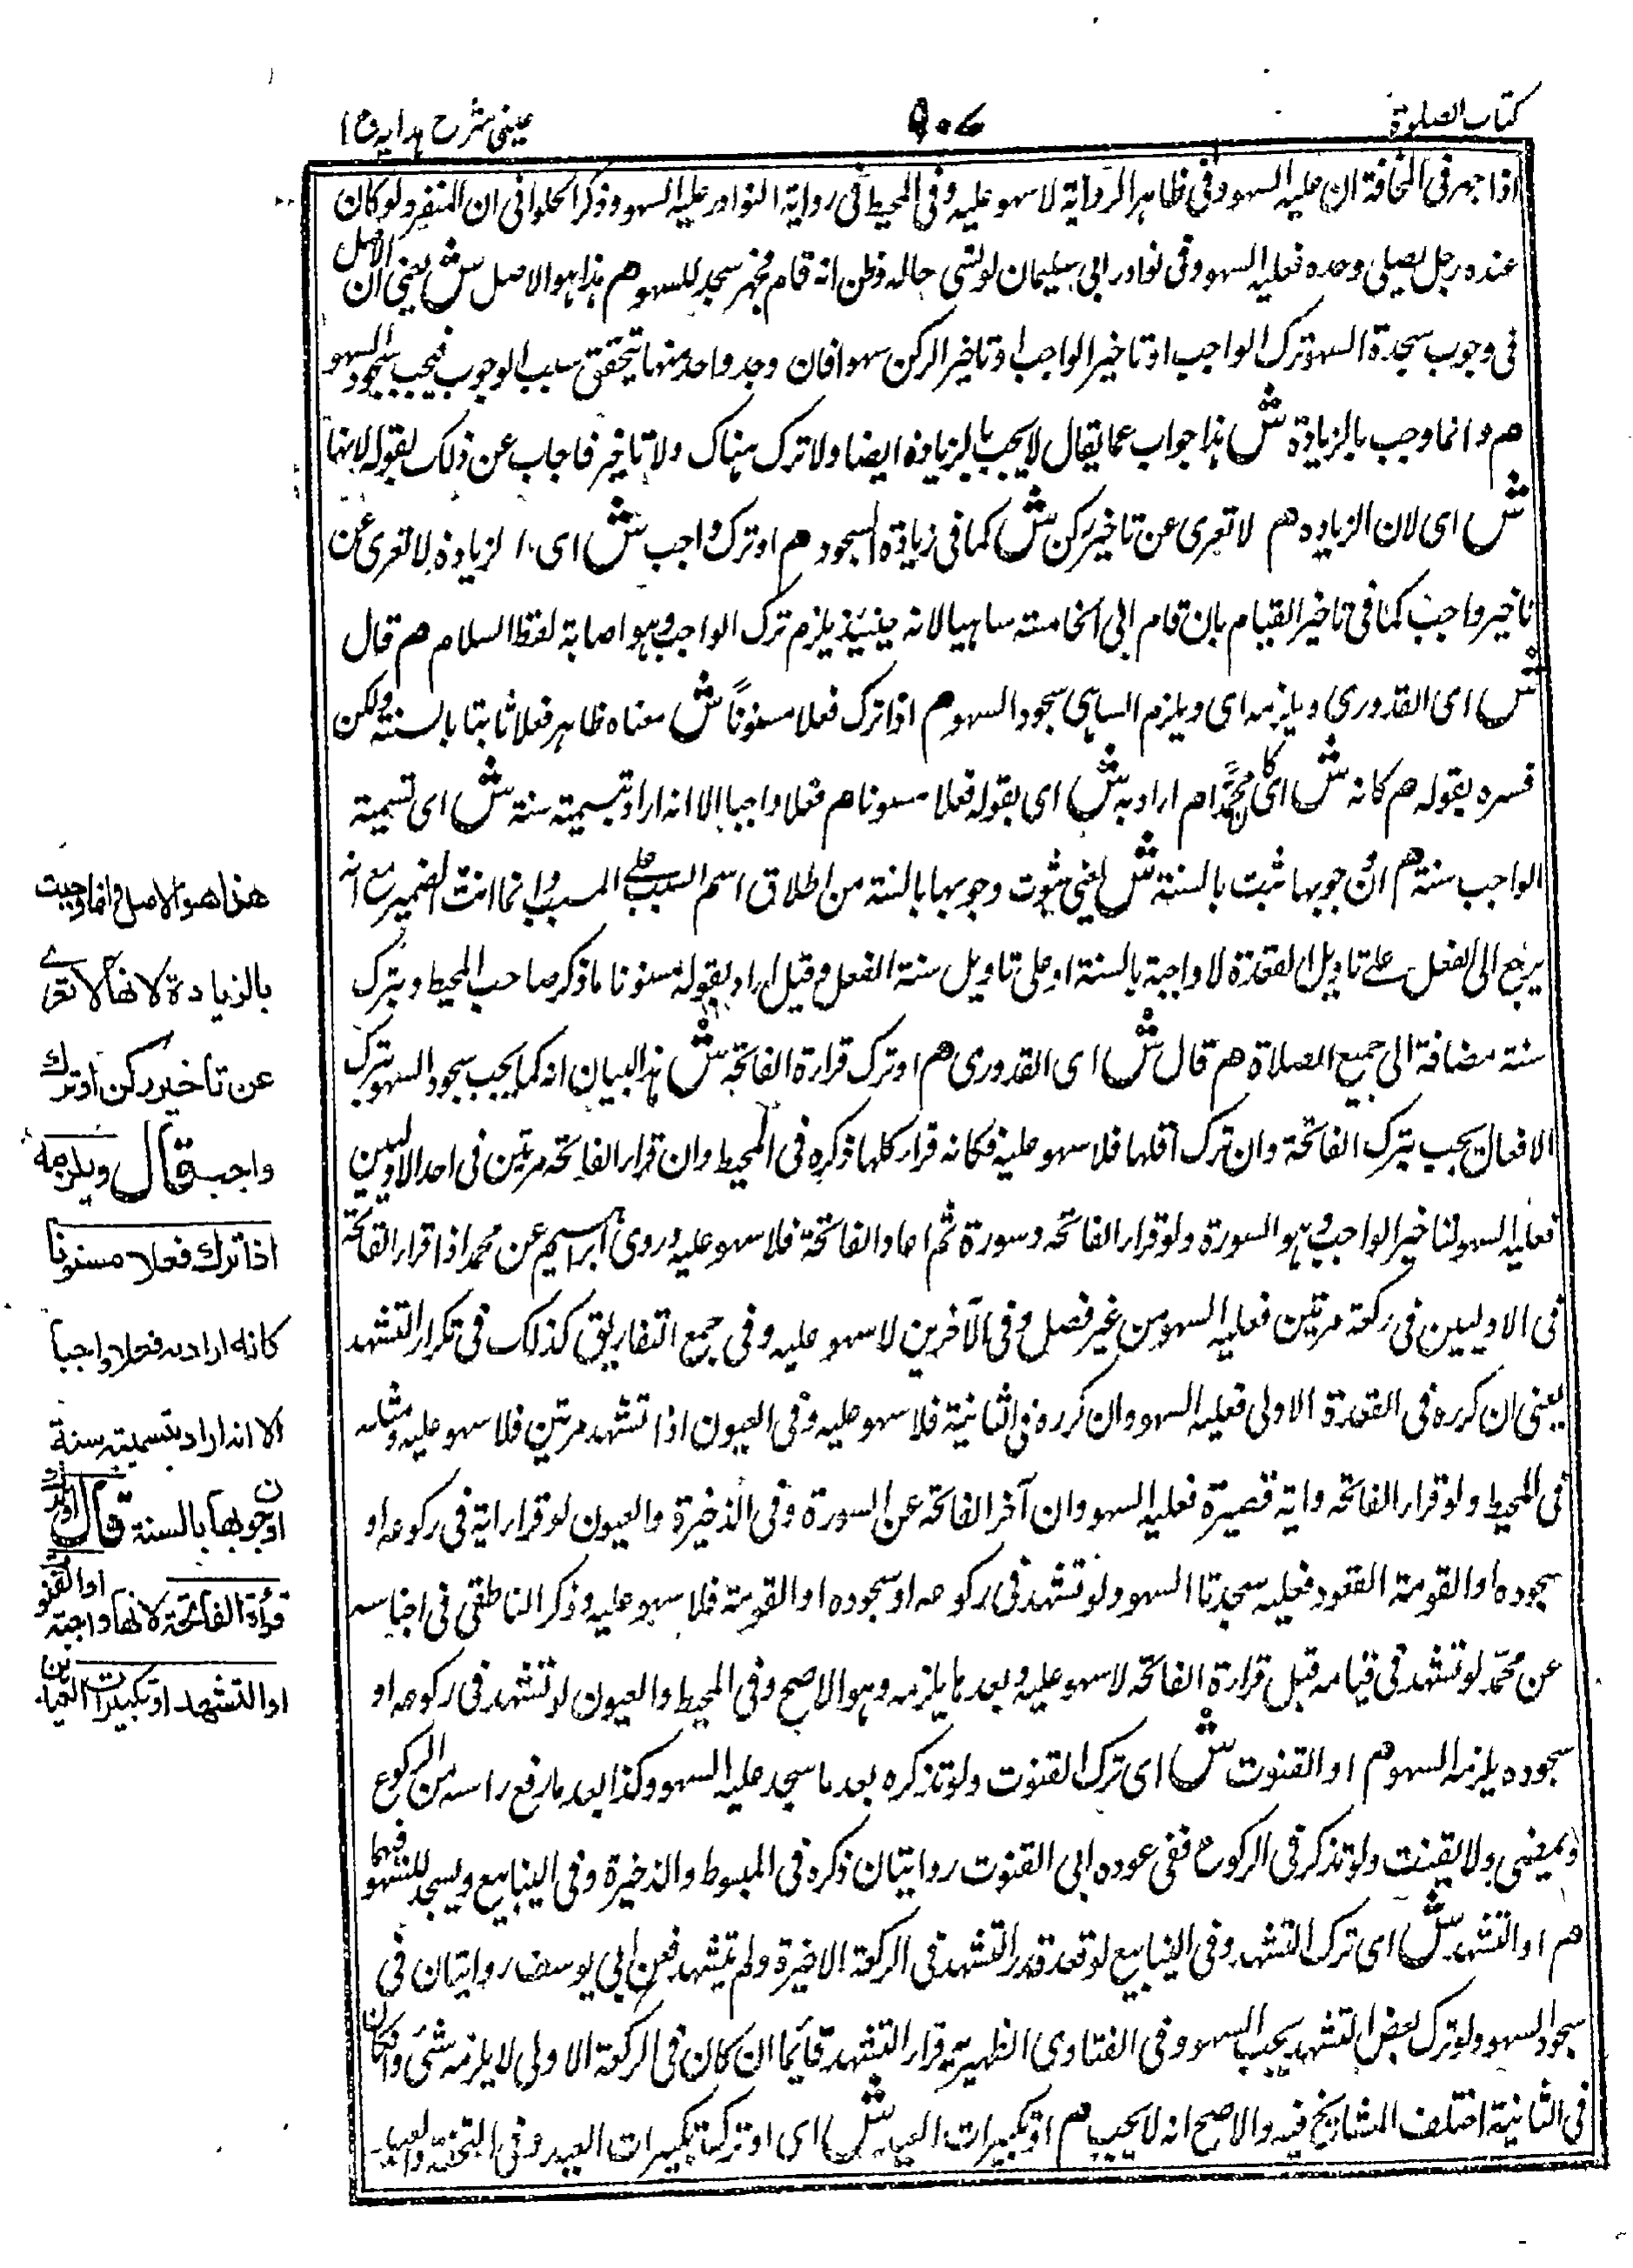 كتاب الصلوة
٩٠٧
عينى شرح هدايه ج ١
اذا جهر فى المخافتة ان عليه السهو وفى ظاهر الرواية لا سهو عليه وفى المحيط فى رواية النوادر عليه السهو وذكر الحلوانى ان المنفرد لو كان
عنده رجل يصلى وحده فعليه السهو وفى نوادر ابى سليمان لو نسى حاله وظن انه قام فجهر سجد للسهو هم هذا هو الاصل ش يعنى ان الاصل
فى وجوب سجدة السهو ترك الواجب او تاخير الواجب او تاخير الركن سهوا فان وجد واحد منها يتحقق سبب الوجوب فيجب سجود السهو
هم وانما وجب بالزيادة ش هذا جواب عما يقال لا يجب بالزيادة ايضا ولا ترك هناك ولا تاخير فاجاب عن ذلك بقوله لانها
ش اى لان الزياده هم لا تعرى عن تاخير ركن ش كما فى زيادة السجود هم او ترك واجب ش اى الزيادة لا تعرى عن
تاخير واجب كما فى تاخير القيام بان قام الى الخامسة ساهيا لانه حينئذ يلزم ترك الواجب وهو اصابة لفظ السلام هم قال
ش اى القدورى ويلزمه اى ويلزم الساهى سجود السهو هم اذا ترك فعلا مسنوناً ش معناه ظاهر فعلا ثابتا بالسنة ولكن
فسره بقوله هم كانه ش اى كان محمدا هم اراد به ش اى بقوله فعلا مسنونا هم فعلا واجبا الا انه اراد بتسميته سنة ش اى تسمية
الواجب سنة هم ان وجوبها ثبت بالسنة ش يعنى ثبوت وجوبها بالسنة من اطلاق اسم السبب على المسبب وانما انث الضمير مع انه
يرجع الى الفعل على تاويل القعدة لا واجبة بالسنة او على تاويل سنة الفعل وقيل اراد بقوله مسنونا ما ذكر صاحب المحيط وبترك
سنة مضافة الى جميع الصلاة هم قال ش اى القدورى هم او ترك قراءة الفاتحة ش هذا لبيان انه كما يجب سجود السهو بترك
الافعال يجب بترك الفاتحة وان ترك اقلها فلا سهو عليه فكانه قرأ كلها ذكره فى المحيط وان قرأ الفاتحة مرتين فى احد الاوليين
فعليه السهو لتاخير الواجب وهو السورة ولو قرأ الفاتحه وسورة ثم اعاد الفاتحة فلا سهو عليه وروى ابراهيم عن محمد اذا قرأ الفاتحة
فى الاوليين فى ركعة مرتين فعليه السهو من غير فصل وفى الآخرين لا سهو عليه وفى جمع التفاريق كذلك فى تكرار التشهد
يعنى ان كرره فى القعدة الاولى فعليه السهو وان كرره فى الثانية فلا سهو عليه وفى العيون اذا تشهد مرتين فلا سهو عليه ومثله
فى المحيط ولو قرأ الفاتحه واية قصيرة فعليه السهو وان آخر الفاتحة عن السورة وفى الذخيرة والعيون لو قرأ اية فى ركوعه او
سجوده او القومة القعود فعليه سجدتا السهو ولو تشهد فى ركوعه او سجوده او القومة فلا سهو عليه وذكر الناطقى فى اجناسه
عن محمد لو تشهد فى قيامه قبل قراءة الفاتحة لا سهو عليه وبعدها يلزمه وهو الاصح وفى المحيط والعيون لو تشهد فى ركوعه او
سجوده يلزمه السهو هم او القنوت ش اى ترك القنوت ولو تذكره بعد ما سجد عليه السهو وكذا بعد ما رفع راسه من الركوع
ويمضى ولا يقنت ولو تذكر فى الركوع ففى عوده الى القنوت روايتان ذكره فى المبسوط والذخيرة وفى الينابيع ويسجد للسهو فيهما
هم او التشهد ش اى ترك التشهد وفى الينابيع لو قعد قدر التشهد فى الركعة الاخيرة ولم يتشهد فعن ابى يوسف روايتان فى
سجود السهو ولو ترك بعض التشهد يجب السهو وفى الفتاوى الظهيرية قرأ التشهد قائما ان كان فى الركعة الاولى لا يلزمه شئ وان كان
فى الثانية اختلف المشايخ فيه والاصح انه لا يجب هم او تكبيرات العيد ش اى او ترك تكبيرات العيد وفى التحفة والعيد
هذا هو الاصل وانما وجبت
بالزيادة لانها لا تعرى
عن تاخير ركن او ترك
واجب قال ويلزمه
اذا ترك فعلا مسنونا
كانه اراد به فعلا واجبا
الا انه اراد بتسميته سنة
ان وجوبها بالسنة قال او ترك
قراءة الفاتحة لانها واجبة او القنوت
او التشهد او تكبيرات العيدين